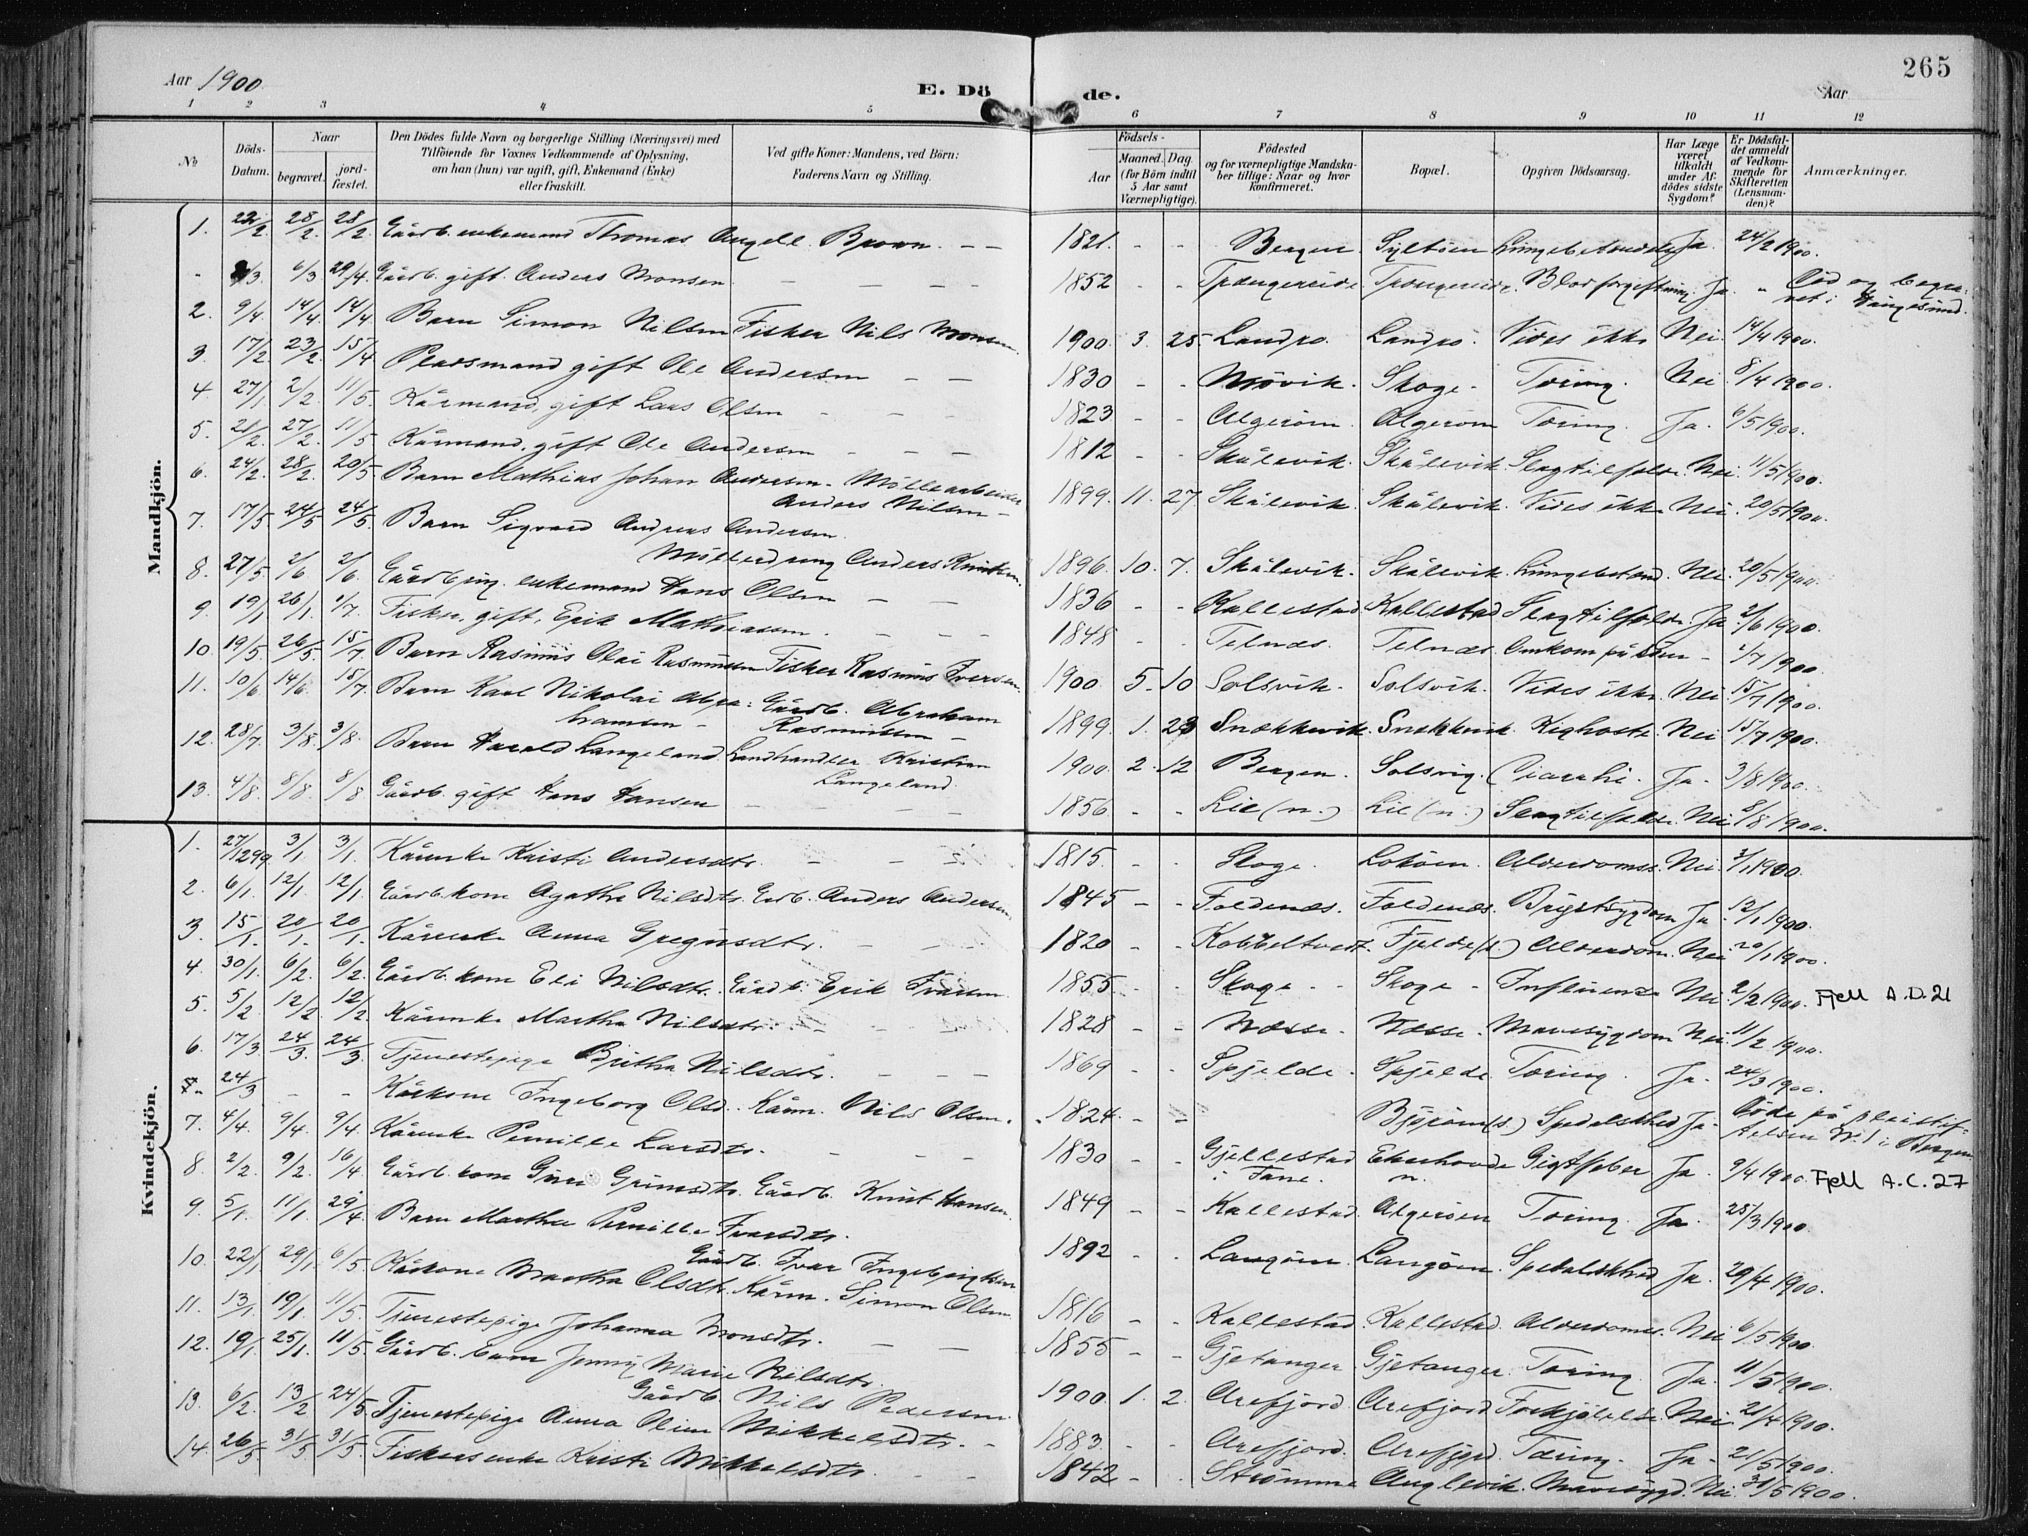 265
Aar 1900
E. Dö de.
Aar
1 2 3 4 5 6 7 8 9 10 11 12
No
Döds-Datum.
Naar
begravet.
jord-fæstet.
Den Dödes fulde Navn og borgerlige Stilling (Næringsvei) med
Tilföiende for Voxnes Vedkommende af Oplysning,
om han (hun) var ugift, gift, Enkemand (Enke)
eller fraskilt.
Ved gifte Koner: Mandens, ved Börn:
Faderens Navn og Stilling.
Födsels-
Aar
Maaned. Dag.
(for Börn indtil
5 Aar samt
Værnepligtige).
Födested
og for værnepligtige Mandska-
ber tillige: Naar og hvor
konfirmeret.
Bopæl.
Opgiven Dödsaarsag.
Har Læge
været
tilkaldt
under Af-
dödes sidste
Sygdom?
Er Dödsfal-
det anmeldt
af Vedkom-
mende for
Skifteretten
(Lensman-
den)?
Anmærkninger.
Mandkjön.
1. 22/2 28/2 28/2 Gårdb. enkemand Thomas Angell Brown. – – 1821. - - Bergen Syltöen Lungebetændelse Ja. 24/2 1900.
- /3 6/3 29/4 Gårdb. gift. Anders Monsen – – – – 1852 - - Trængereide Trængereide Blodforgiftning Ja. " Död og begra-
vet i Haugesund.
2. 9/4 14/4 14/4 Barn Simon Nilsen Fisker Nils Monsen. 1900. 3. 25. Landrö. Landrö. Vides ikke Nei. 14/4 1900.
3. 17/2 23/2 15/4 Pladsmand gift Ole Andersen – – 1830 - - Mövik. Skoge. Tæring. Nei 8/4 1900.
4. 27/1 2/2 11/5. Kårmand, gift Lars Olsen – – – 1823 - - Algeröen. Algeröen Tæring. Ja. 6/5 1900.
5. 21/2. 27/2. 11/5 Kårmand, gift Ole Andersen – – – 1812 - - Skålevik. Skålevik Slagtilfælde Nei. 11/5 1900.
6. 24/2. 28/2. 20/5 Barn Mathias Johan Andersen. Möllearbeider
Anders Nilsen – 1899. 11. 27. Skålevik. Skålevik. Vides ikke Nei. 20/5 1900.
7. 17/5 24/5 24/5. Barn Sigvard Andreas Andersen.
Mölledreng Anders Knutsen. 1896. 10. 7. Skålevik. Skålevik. Lungebetænd. Nei. 20/5 1900.
8. 27/5. 2/6 2/6. Gårdbrug. enkemand Hans Olsen – – 1836 - - Kallestad Kallestad Slagtilfælde. Ja 2/6 1900.
9. 19/1 26/1. 1/7. Fisker, gift, Erik Mathiassen. – – – 1848 - - Telnæs. Telnæs. Omkom på söen – 1/7 1900
10. 19/5. 26/5. 15/7. Barn Rasmus Olai Rasmussen Fisker Rasmus Iversen. 1900. 5. 10 Solsvik. Solsvik. Vides ikke. Nei. 15/7 1900.
11. 10/6 14/6. 15/7. Barn Karl Nikolai Abra- Gårdb. Abraham
hamsen – Rasmussen – 1899. 1. 23 Snekkevik. Snekkevik. Kighoste. Nei 15/7 1900.
12. 28/7. 3/8. 3/8. Barn Harald Langeland Landhandler Kristian
Langeland. 1900. 2. 12 Bergen. Solsvig. Ciarrhé. Ja. 3/8 1900.
13. 4/8. 8/8. 8/8 Gårdb. gift Hans Hansen – – 1856. - - Lie (n.) Lie (n.) Slagtilfælde. Nei 8/8 1900.
Kvindekjön.
1. 27/12 99. 3/1. 3/1. Kårenke Kristi Andersdtr. – – – 1815. - - Skoge. Loköen. Alderdomss. Nei. 3/1 1900.
2. 6/1. 12/1. 12/1. Gårdb.kone Agatha Nilsdtr. Grdb. Anders Andersen. 1845 - - Foldenæs. Foldenæs. Brystsygdom Ja. 12/1 1900.
3. 15/1. 20/1. 20/1. Kårenke Anna Gregusdtr. – – 1820 - - Kobbeltvedt. Fjelde (s.) Alderdom. Nei 20/1 1900.
4. 30/1. 6/2. 6/2. Gårdb. kone Eli Nilsdtr. Gårdb. Erik Ivarsen. 1855. - - Skoge. Skoge – Influenza Nei 2/2 1900. Fjell A.D.21
5. 5/2 12/2. 12/2. Kårenke Martha Nilsdtr. – – 1828 - - Næsse. Næsse. Mavesygdom Nei. 11/2 1900.
6. 17/3 24/3. 24/3 Tjenestepige Britha Nilsdtr. – – – 1869 - - Spjelde. Spjelde Tæring. Ja. 24/3 1900.
7. 24/3 – – Kårkone Ingeborg Olsd. Kårm. Nils Olsen. 1824. - - Björöen (s.) Spedalskhed Ja. Döde på pleiestif-
telsen No. 1 i Bergen
7. 4/4. 9/4. 9/4. Kårenke Pernille Larsdtr. – – – 1830 - - Gjellestad
i Fane. Ekerhovde
n. Gigtfeber Ja. 9/4 1900. Fjell A.C.27
8. 2/2. 9/2. 16/4 Gårdb. kone Guri Grimsdtr. Gårdb. Knut Hansen. 1849 - - Kallestad. Algeröen Tæring. Ja. 25/3 1900.
9. 5/1. 11/1. 29/4 Barn Martha Pernille Ivarsdtr.
Gårdb. Ivar Ingebrigtsen 1892 - - Langöen. Langöen. Spedalskhed Ja. 29/4 1900.
10. 22/1. 29/1. 6/5. Kårkone Martha Olsdtr. Kårm. Simon Olsen 1816 - - Kallestad. Kallestad. Alderdomss. Nei 6/5 1900
11. 13/1. 19/1. 11/5. Tjenestepige Johanna Monsdtr. – – 1855 - - Gjetanger Gjetanger. Tæring. Ja. 11/5 1900.
12. 19/1. 25/1. 11/5. Gårdb. barn Jenny Marie Nilsdtr.
Gårdb. Nils Pedersen 1900. 1. 2. Arefjord. Arefjord Forkjölelse. Nei 2/4 1900.
13. 6/2. 13/2 24/5. Tjenestepige Anna Oline Mikkelsdtr. – 1883. - - Arefjord. Arefjord. Tæring. Ja. 21/5 1900.
14. 26/5. 31/5 31/5. Fiskersenke Kristi Mikkelsdtr. – – 1842 - - Strömme Anglevik. Mavesygd. Nei. 31/5 1900.